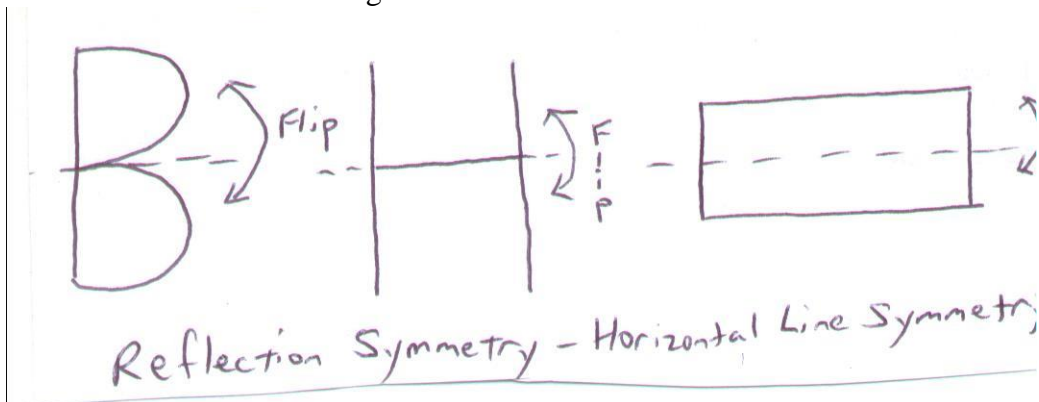 Flip
Flip
Reflection Symmetry - Horizontal Line Symmetr